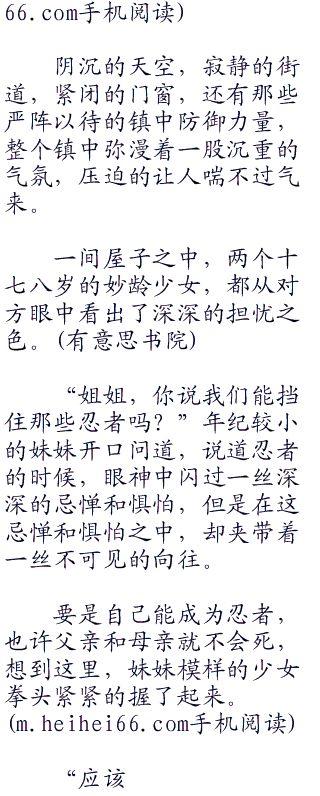 66.com手机阅读)
阴沉的天空，寂静的街
道，紧闭的门窗，还有那些
严阵以待的镇中防御力量，
整个镇中弥漫着一股沉重的
气氛，压迫的让人喘不过气
来。
一间屋子之中，两个十
七八岁的妙龄少女，都从对
方眼中看出了深深的担忧之
色。(有意思书院)
“姐姐，你说我们能挡
住那些忍者吗？”年纪较小
的妹妹开口问道，说道忍者
的时候，眼神中闪过一丝深
深的忌惮和惧怕，但是在这
忌惮和惧怕之中，却夹带着
一丝不可见的向往。
要是自己能成为忍者，
也许父亲和母亲就不会死，
想到这里，妹妹模样的少女
拳头紧紧的握了起来。
(m.heihei66.com手机阅读)
“应该